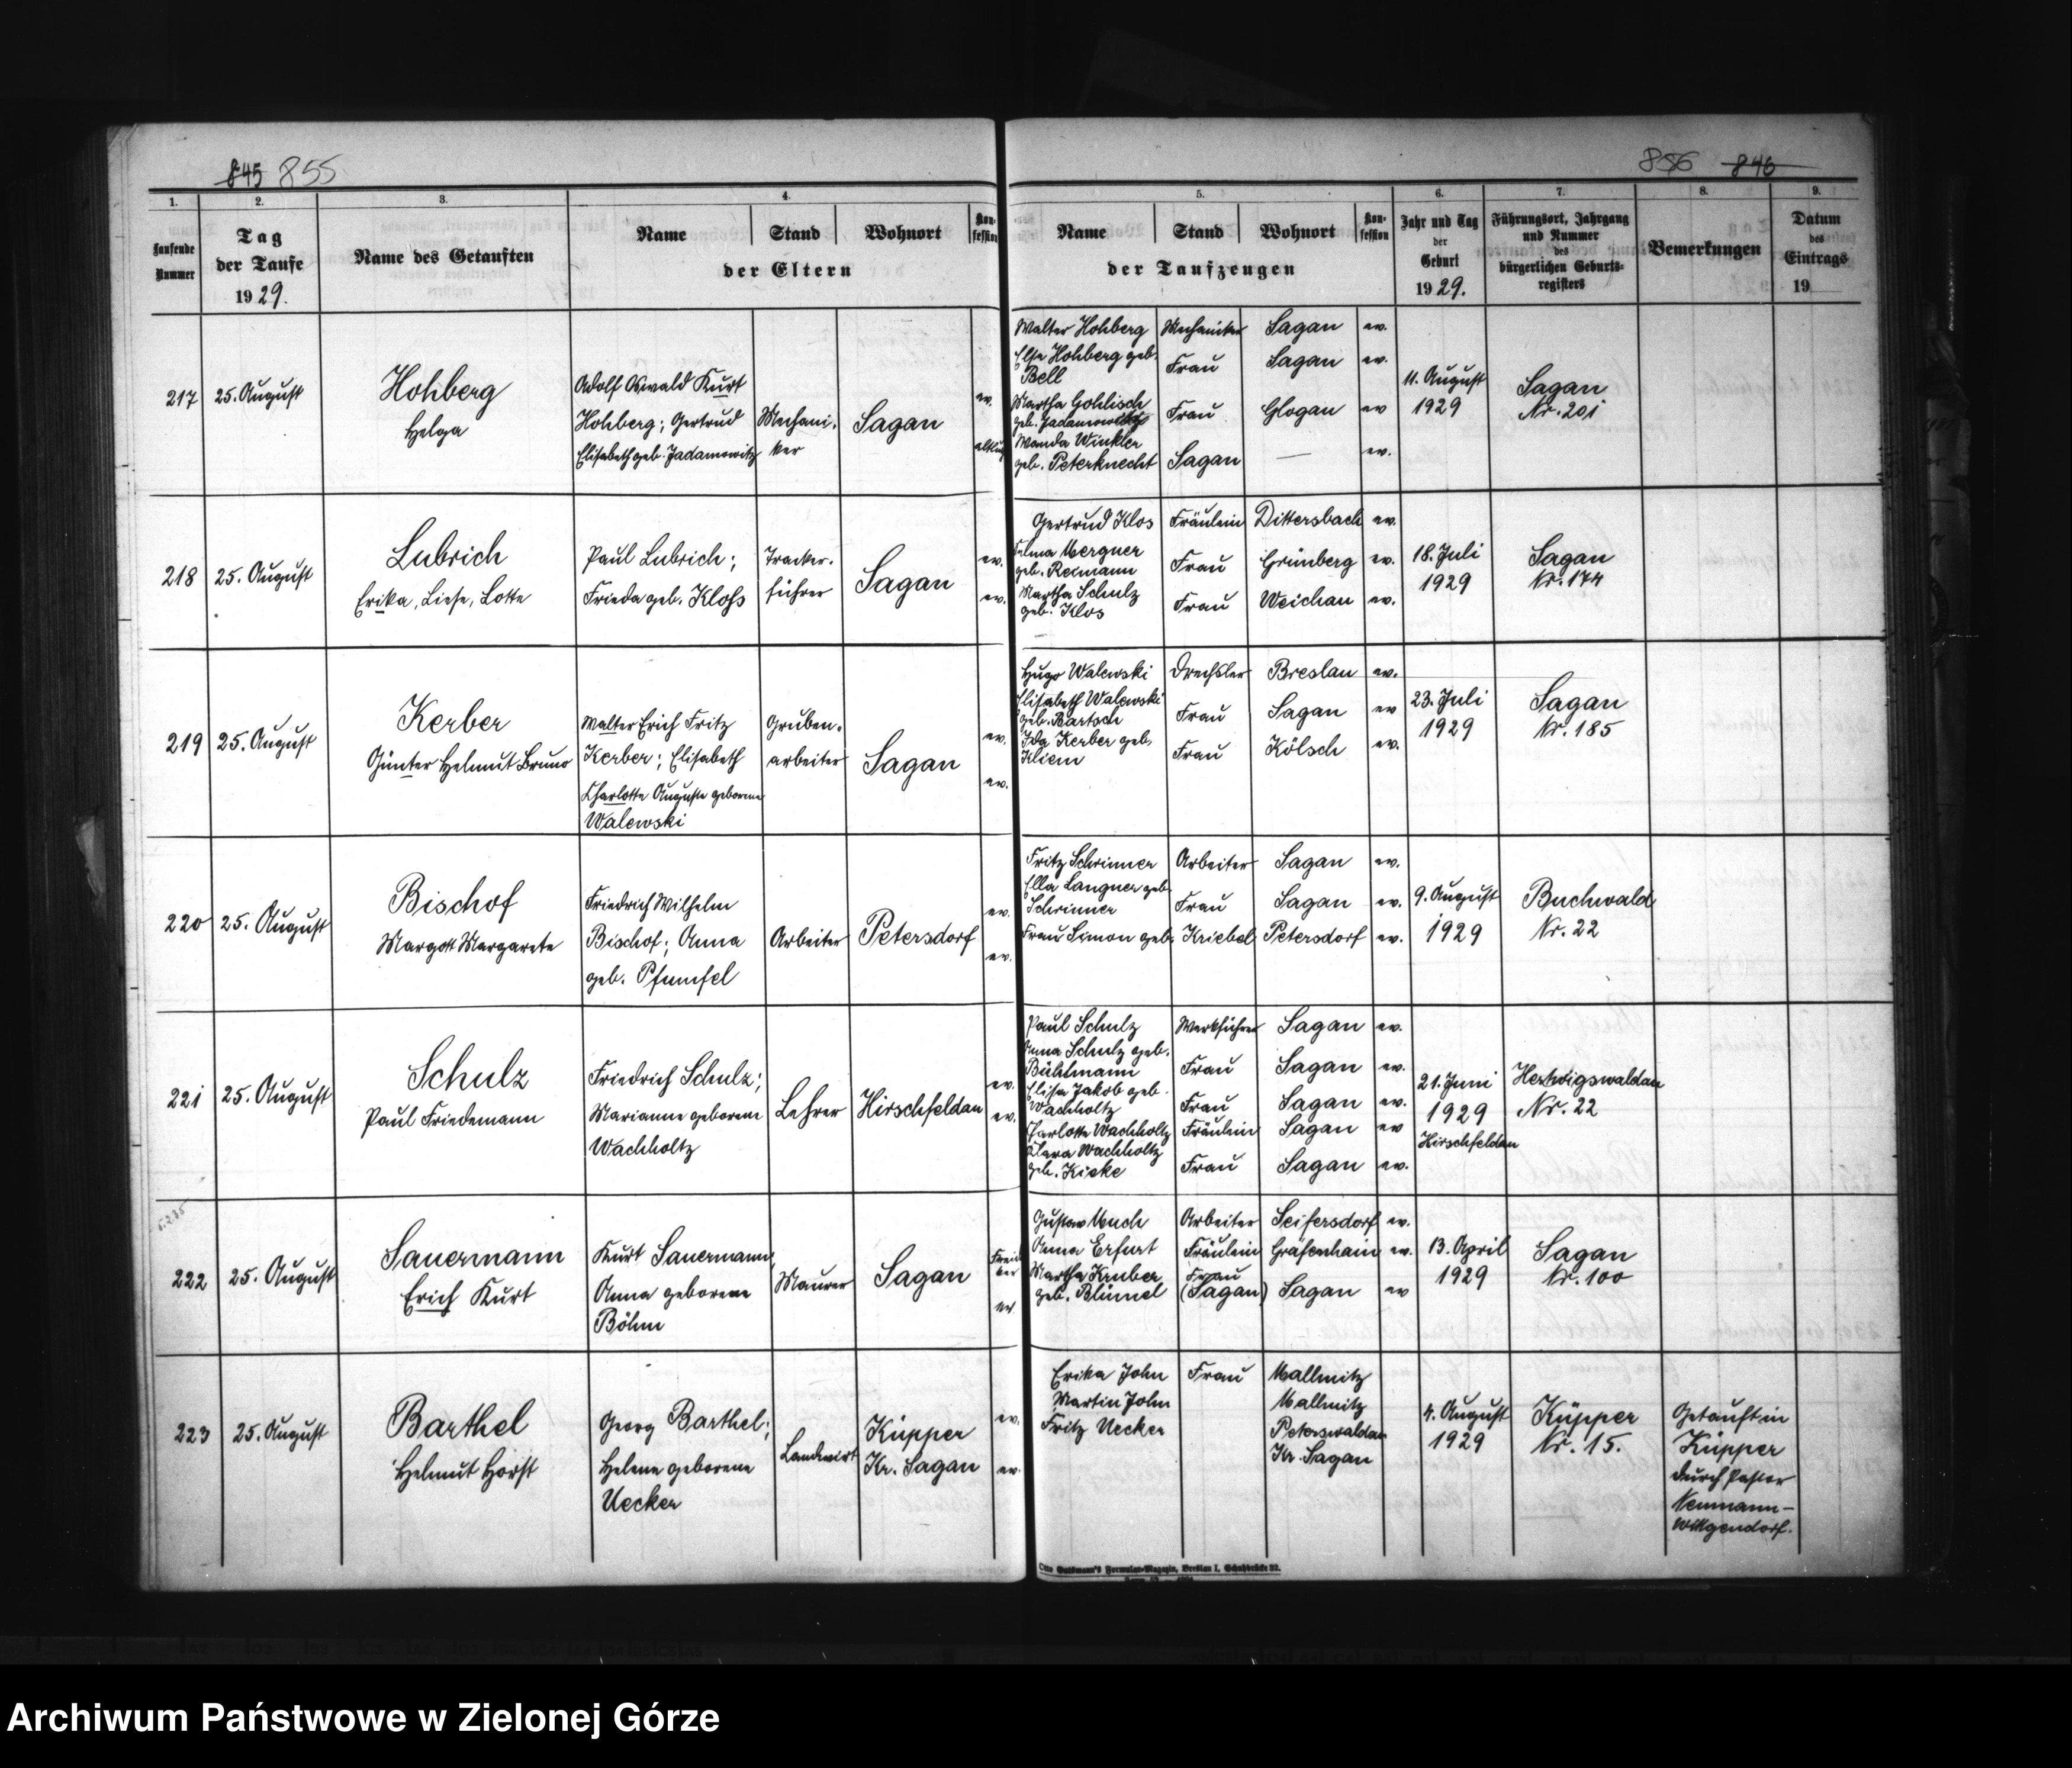 845 855
856 846
1. 2. 3. 4. 5. 6. 7. 8. 9.
Laufende Nummer
Tag der Taufe 1929.
Name des Getauften
Name Stand Wohnort Konfession
der Eltern
Name Stand Wohnort Konfession
der Taufzeugen
Jahr und Tag der Geburt 1929.
Führungsort, Jahrgang und Nummer des bürgerlichen Geburts-registers
Bemerkungen
Datum des Eintrags 19
217 25. August
Hohberg
Helga
Adolf Oswald Kurt
Hohberg; Gertrud
Elisabeth geb. Jadamowitz
Mechani-
ker
Sagan
ev.
Walter Hohberg Mechaniker Sagan ev.
Else Hohberg geb. Frau Sagan ev.
Bell
Martha Gohlisch Frau Glogan ev
geb. Jadamowitz
Wanda Winkler ev.
geb. Peterknecht Sagan —
11. August
1929
Sagan
Nr. 201
218 25. August
Lubrich
Erika, Liese, Lotte
Paul Lubrich;
Frieda geb. Kloss
führer
Sagan
ev.
ev.
Gertrud Klos Fräulein Dittersbach ev.
Selma Mergner Frau Grünberg ev.
geb. Reimann
Martha Schulz Frau Weichau ev.
geb. Klos
18. Juli
1929
Sagan
Nr. 174
219 25. August
Kerber
Günter Helmut Bruno
Walter Erich Fritz
Kerber; Elisabeth
Charlotte Auguste geborene
Walewski
Gruben-
arbeiter
Sagan
ev.
ev.
Hugo Walewski Drechsler Breslau ev.
Elisabeth Walewski Frau Sagan ev
geb. Bartsch
Ida Kerber geb. Frau Kölsch ev.
Kliem
23. Juli
1929
Sagan
Nr. 185
220 25. August
Bischof
Margott Margarete
Friedrich Wilhelm
Bischof; Anna
geb. Pfumfel
Arbeiter
Petersdorf
ev.
ev.
Fritz Schrinner Arbeiter Sagan ev.
Ella Langner geb. Frau Sagan ev.
Schrinner
Frau Simon geb. Kriebel Petersdorf ev.
9. August
1929
Buchwald
Nr. 22
221 25. August
Schulz
Paul Friedemann
Friedrich Schulz;
Marianne geborene
Wachholtz
Lehrer
Hirschfeldau
ev.
ev.
Paul Schulz Werkführer Sagan ev.
Anna Schulz geb. Frau Sagan ev.
Bühlmann
Elise Jakob geb. Frau Sagan ev.
Wachholtz
Charlotte Wachholtz Fräulein Sagan ev
Clara Wachholtz Frau Sagan ev.
geb. Kieke
21. Juni
1929
Hirschfeldau
Hertwigswaldau
Nr. 22
222 25. August
Sauermann
Erich Kurt
Kurt Sauermann,
Anna geborene
Böhm
Maurer
Sagan
ev.
Gustav Much Arbeiter Seifersdorf ev.
Anna Erfurt Fräulein Gräfenhain ev.
Martha Kruber Frau
geb. Blümel (Sagan) Sagan ev
13. April
1929
Sagan
Nr. 100
223 25. August
Barthel
Helmut Horst
Georg Barthel;
Helene geborene
Uecker
Landwirt
Küpper
Kr. Sagan
ev.
ev.
Erika John Frau Mallmitz
Martin John Mallmitz
Fritz Uecker Peterswaldau
Kr. Sagan
4. August
1929
Küpper
Nr. 15.
Getauft in
Küpper
durch Pastor
Neumann-
Wittgendorf.
Archiwum Państwowe w Zielonej Górze